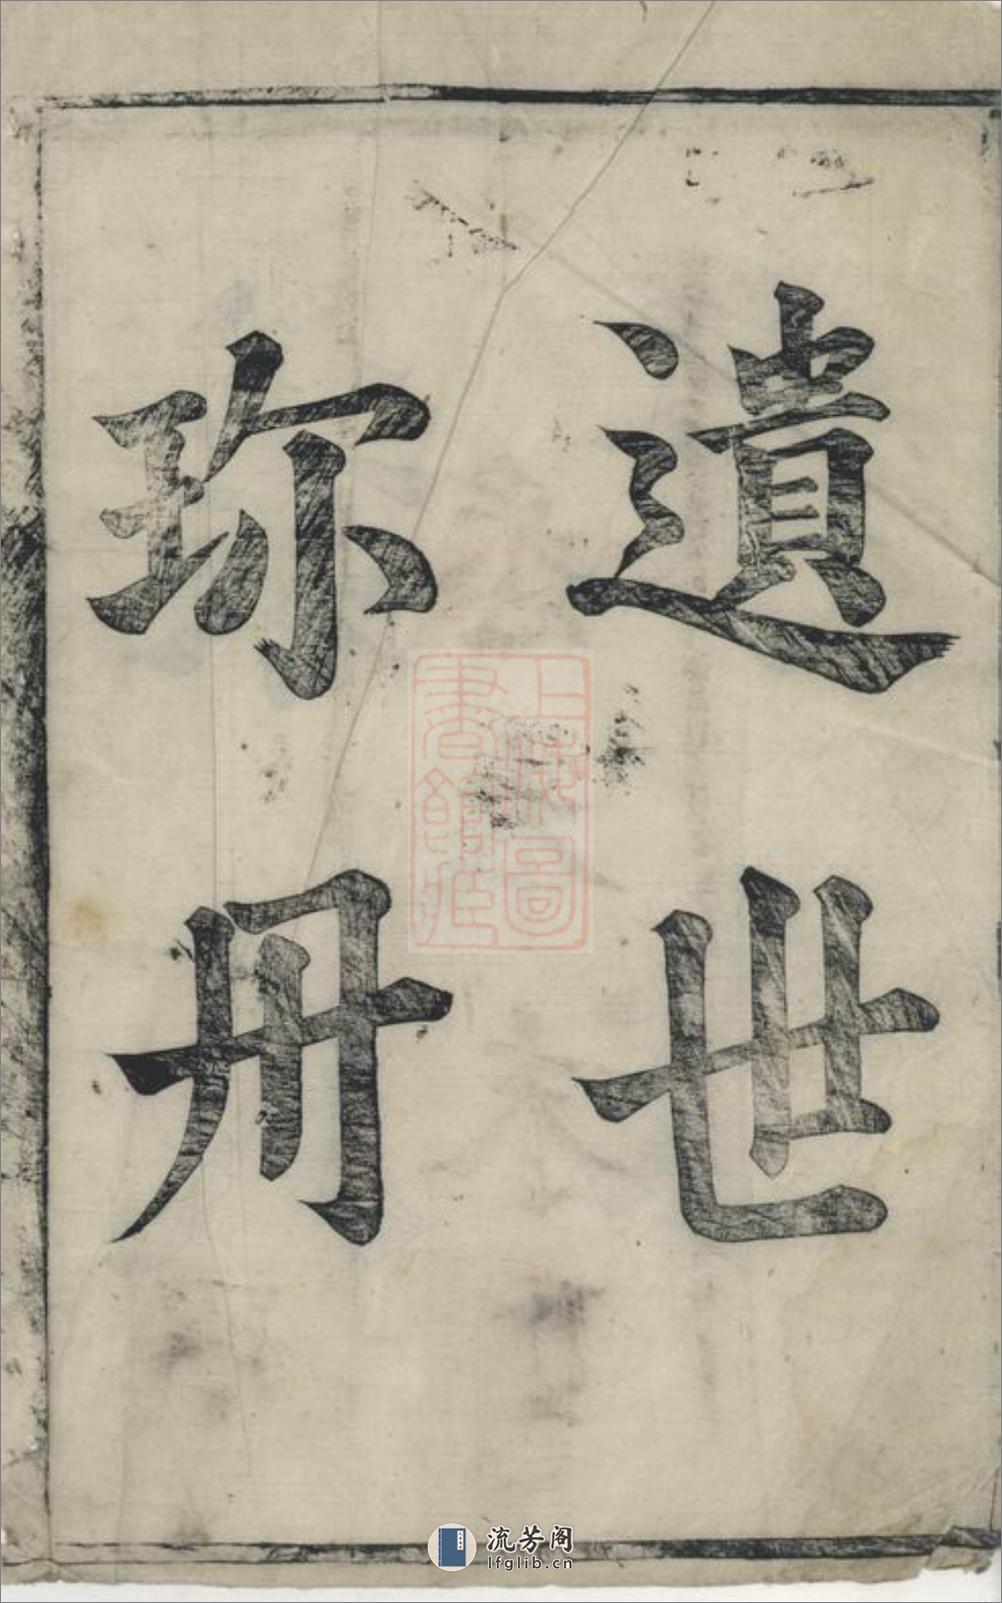 遺世
珎冊
上海圖
書館藏
流芳阁
lfglib.cn